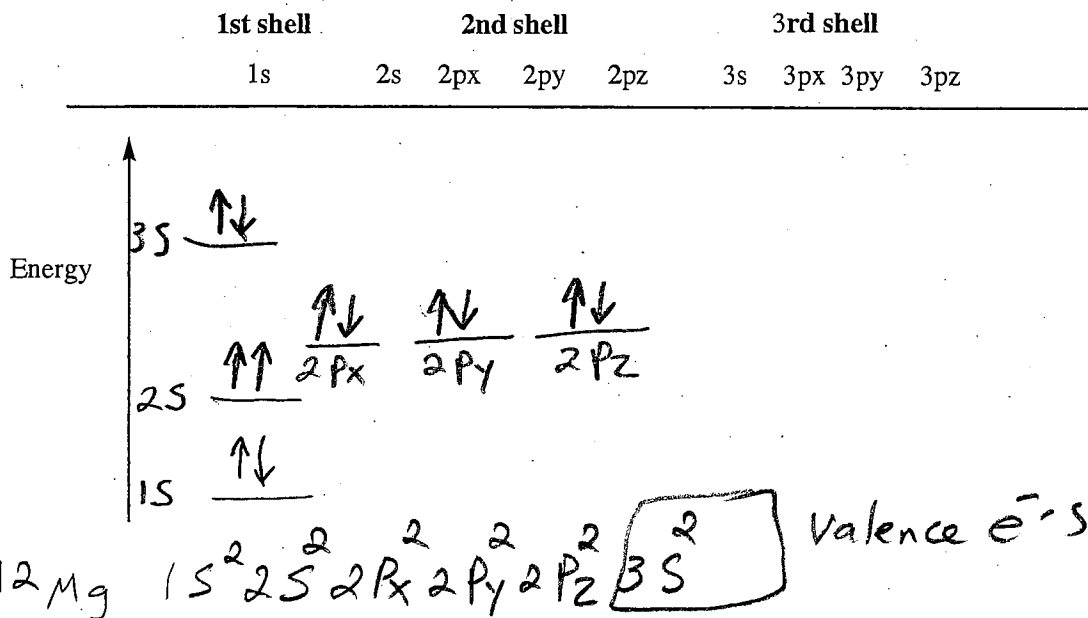 1st shell 2nd shell 3rd shell
1s 2s 2px 2py 2pz 3s 3px 3py 3pz
3S ↑↓
Energy
↑↓ ↑↓ ↑↓
2Px 2Py 2Pz
2S ↑↑
1S ↑↓
12 Mg 1S² 2S² 2Px² 2Py² 2Pz² 3S² Valence e⁻'s